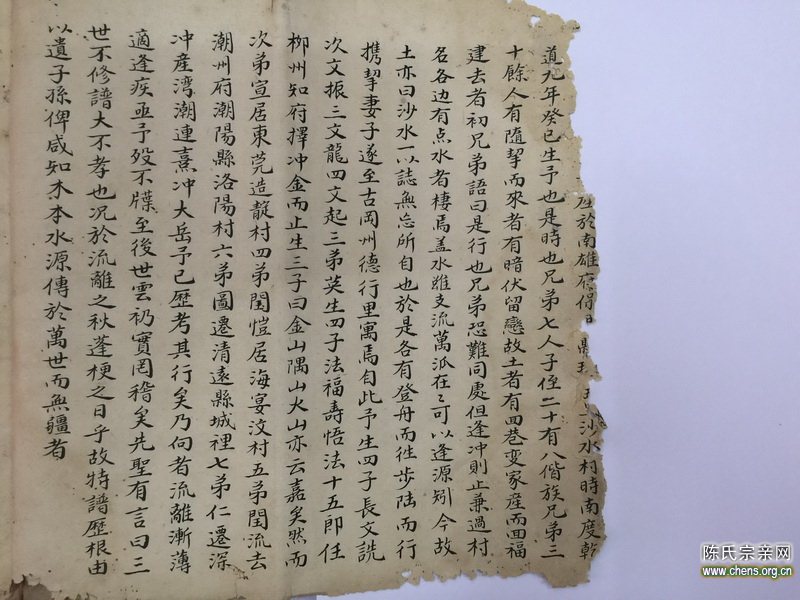 於南雄府保昌縣 沙水村時南度乾
道九年癸巳生予也是時也兄弟七人子侄二十有八偕族兄弟三
十餘人有隨挈而來者有暗伏留戀故土者有回巷变家産而回福
建去者初兄弟語曰是行也兄弟恐難同處但逢冲則止兼過村
名各边有点水者棲焉盖水雖支流萬派在〻可以逢源矧今故
土亦曰沙水一以誌無忘所自也於是各有登舟而徃步陸而行
携挈妻子遂至古岡州德行里寓焉自此予生四子長文詵
次文振三文龍四文起三弟英生四子法福壽悟法十五郎任
柳州知府擇冲金而止生三子曰金山隅山火山亦云嘉矣然而
次弟宣居東莞造靛村四弟閏愷居海宴汶村五弟閏流去
潮州府潮陽縣洛陽村六弟圖遷清遠縣城裡七弟仁遷深
冲產湾潮連熹冲大岳予已歷考其行矣乃向者流離漸薄
適逢疾亟予歿不牒至後世雲礽實罔稽矣先聖有言曰三
世不修譜大不孝也况於流離之秋蓬梗之日乎故特譜歷根由
以遺子孫俾咸知木本水源傳於萬世而無疆者
陈氏宗亲网
www.chens.org.cn